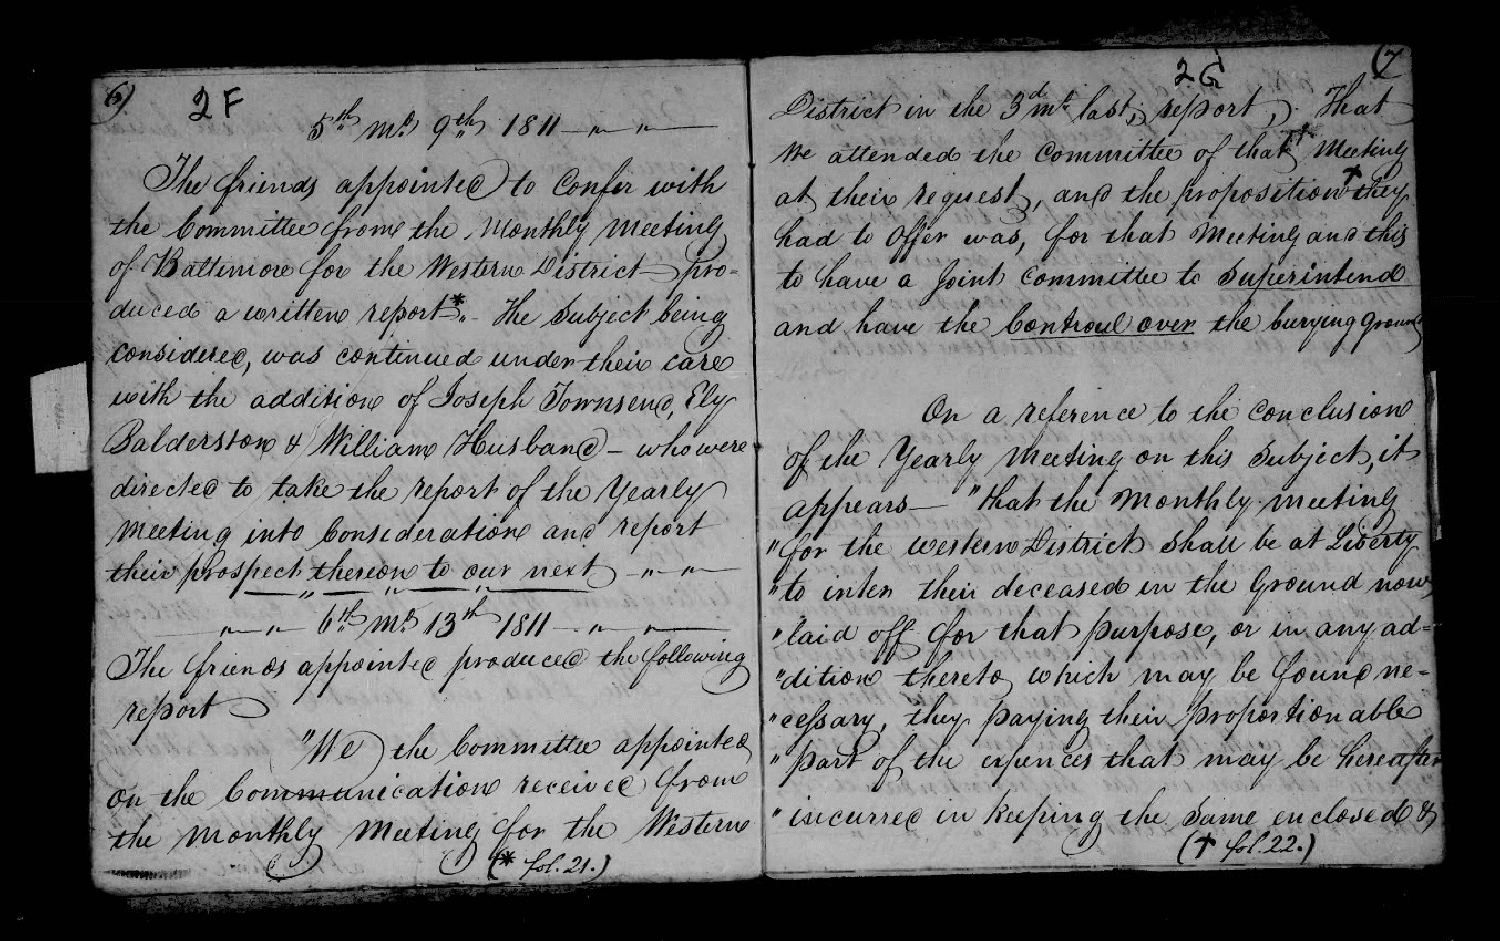 6)
2F
5th mo. 9th 1811
The friends appointed to Confer with
the Committee from the Monthly Meeting
of Baltimore for the Western District pro-
duced a written report*. The Subject being
considered, was continued under their care
with the addition of Joseph Townsend, Ely
Balderston & William Husband - who were
directed to take the report of the Yearly
Meeting into Consideration and report
their prospect thereon to our next
6th mo. 13th 1811
The friends appointed produced the following
report
"We the Committee appointed
on the Communication received from
the Monthly Meeting for the Western
(* fol. 21.)
2G
(7
District in the 3d mo. last, report, That
we attended the Committee of that Meeting
at their request, and the proposition † they
had to Offer was, for that Meeting and this
to have a Joint Committee to Superintend
and have the Controul over the burying Ground
On a reference to the Conclusion
of the Yearly Meeting on this Subject, it
appears — "that the Monthly Meeting
"for the Western District Shall be at Liberty
"to inter their deceased in the Ground now
"laid off for that purpose, or in any ad-
"dition thereto which may be found ne-
"cessary, they paying their proportionable
"part of the expences that may be hereafter
"incurred in keeping the Same enclosed &
(† fol. 22.)